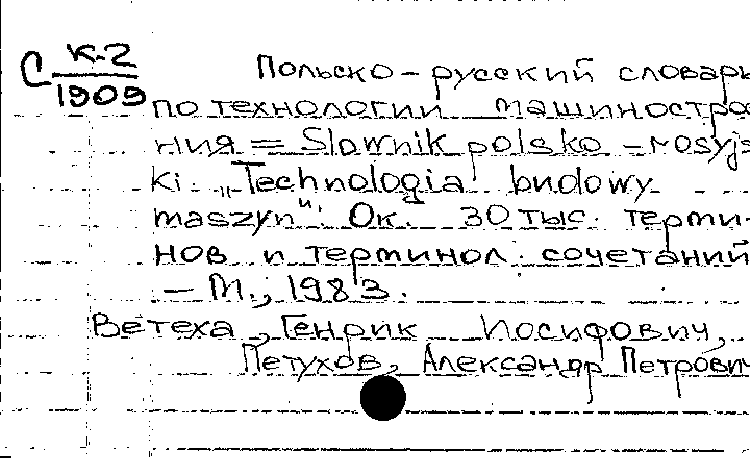 С К-2
1909
Польско-русский словарь
по технологии машиностро
ния = Slownik polsko-rosyjs
ki „Technologia budowy
maszyn". Ок. 30 тыс. терми-
нов и терминол. сочетаний
— М., 1983.
Ветеха, Генрик Иосифович,
Петухов, Александр Петрович